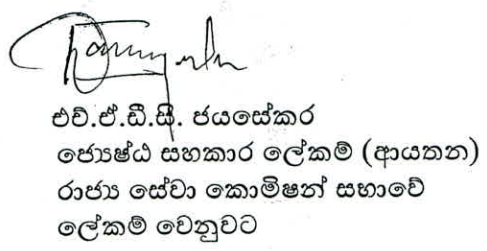 එච්.ඒ.ඩී.සී. ජයසේකර
ජ්‍යෙෂ්ඨ සහකාර ලේකම් (ආයතන)
රාජ්‍ය සේවා කොමිෂන් සභාවේ
ලේකම් වෙනුවට